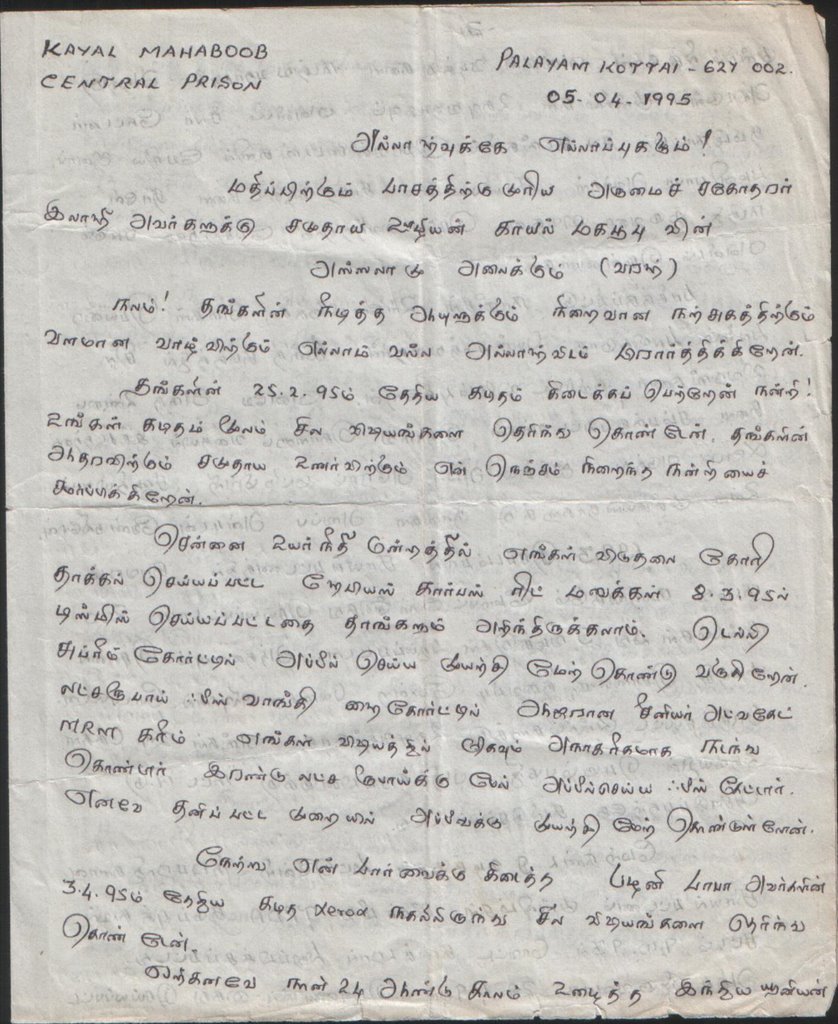 KAYAL MAHABOOB
CENTRAL PRISON
PALAYAM KOTTAI - 627 002.
05.04.1995
அல்லாஹ்வுக்கே எல்லாப்புகழும்!
மதிப்பிற்கும் பாசத்திற்குமுரிய அருமைச் சகோதரர்
இலாஹி அவர்களுக்கு சமுதாய ஊழியன் காயல் மகபூபு வின்
அஸ்ஸலாமு அலைக்கும் (வரஹ்)
நலம்! தங்களின் நீடித்த ஆயுளுக்கும் நிறைவான நற்சுகத்திற்கும்
வளமான வாழ்விற்கும் எல்லாம் வல்ல அல்லாஹ்விடம் பிரார்த்திக்கிறேன்.
தங்களின் 25.2.95ம் தேதிய கடிதம் கிடைக்கப் பெற்றேன் நன்றி!
உங்கள் கடிதம் மூலம் சில விஷயங்களை தெரிந்து கொண்டேன். தங்களின்
ஆதரவிற்கும் சமுதாய உணர்விற்கும் என் நெஞ்சம் நிறைந்த நன்றியைச்
சமர்ப்பிக்கிறேன்.
சென்னை உயர்நீதி மன்றத்தில் எங்கள் விடுதலை கோரி
தாக்கல் செய்யப்பட்ட ஹேபியஸ் கார்பஸ் ரிட் மனுக்கள் 8.3.95ல்
டிஸ்மிஸ் செய்யப்பட்டதை தாங்களும் அறிந்திருக்கலாம். டெல்லி
சுப்ரீம் கோர்ட்டில் அப்பீல் செய்ய முயற்சி மேற்கொண்டு வருகிறேன்.
லட்சரூபாய் ஃபீஸ் வாங்கி ஹைகோர்ட்டில் ஆஜரான சீனியர் அட்வகேட்
MRM கரீம் எங்கள் விஷயத்தில் மிகவும் அநாகரீகமாக நடந்து
கொண்டார் இரண்டு லட்ச ரூபாய்க்கு மேல் அப்பீல்செய்ய ஃபீஸ் கேட்டார்.
எனவே தனிப்பட்ட முறையில் அப்பீலுக்கு முயற்சி மேற்கொண்டுள்ளேன்.
நேற்று என் பார்வைக்கு கிடைத்த பழனி பாபா அவர்களின்
3.4.95ம் தேதிய கடித xerox நகலிலிருந்து சில விஷயங்களை தெரிந்து
கொண்டேன்.
ஏற்கனவே நான் 24 ஆண்டு காலம் உழைத்த இந்திய யூனியன்